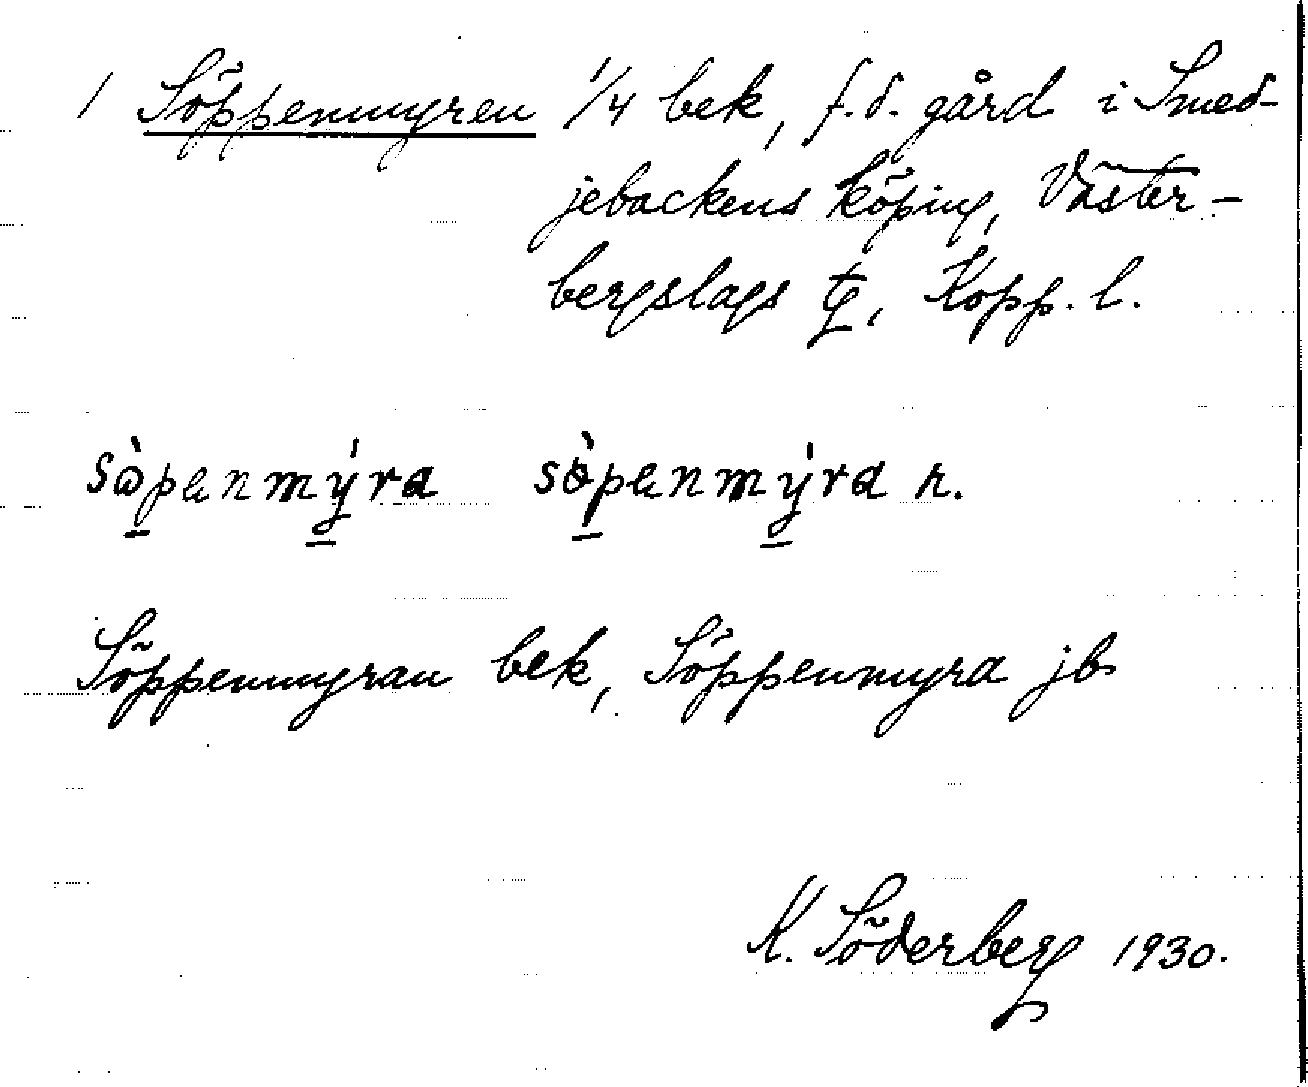 1 Söppenmyren 1/4 bek, f.d. gård i Smed-
jebackens köping, Väster-
bergslags tg, Kopp. l.
sɷ̀penmýra sɵ̀penmýra n.
Söppenmyran bek, Söppenmyra jb
K. Söderberg 1930.